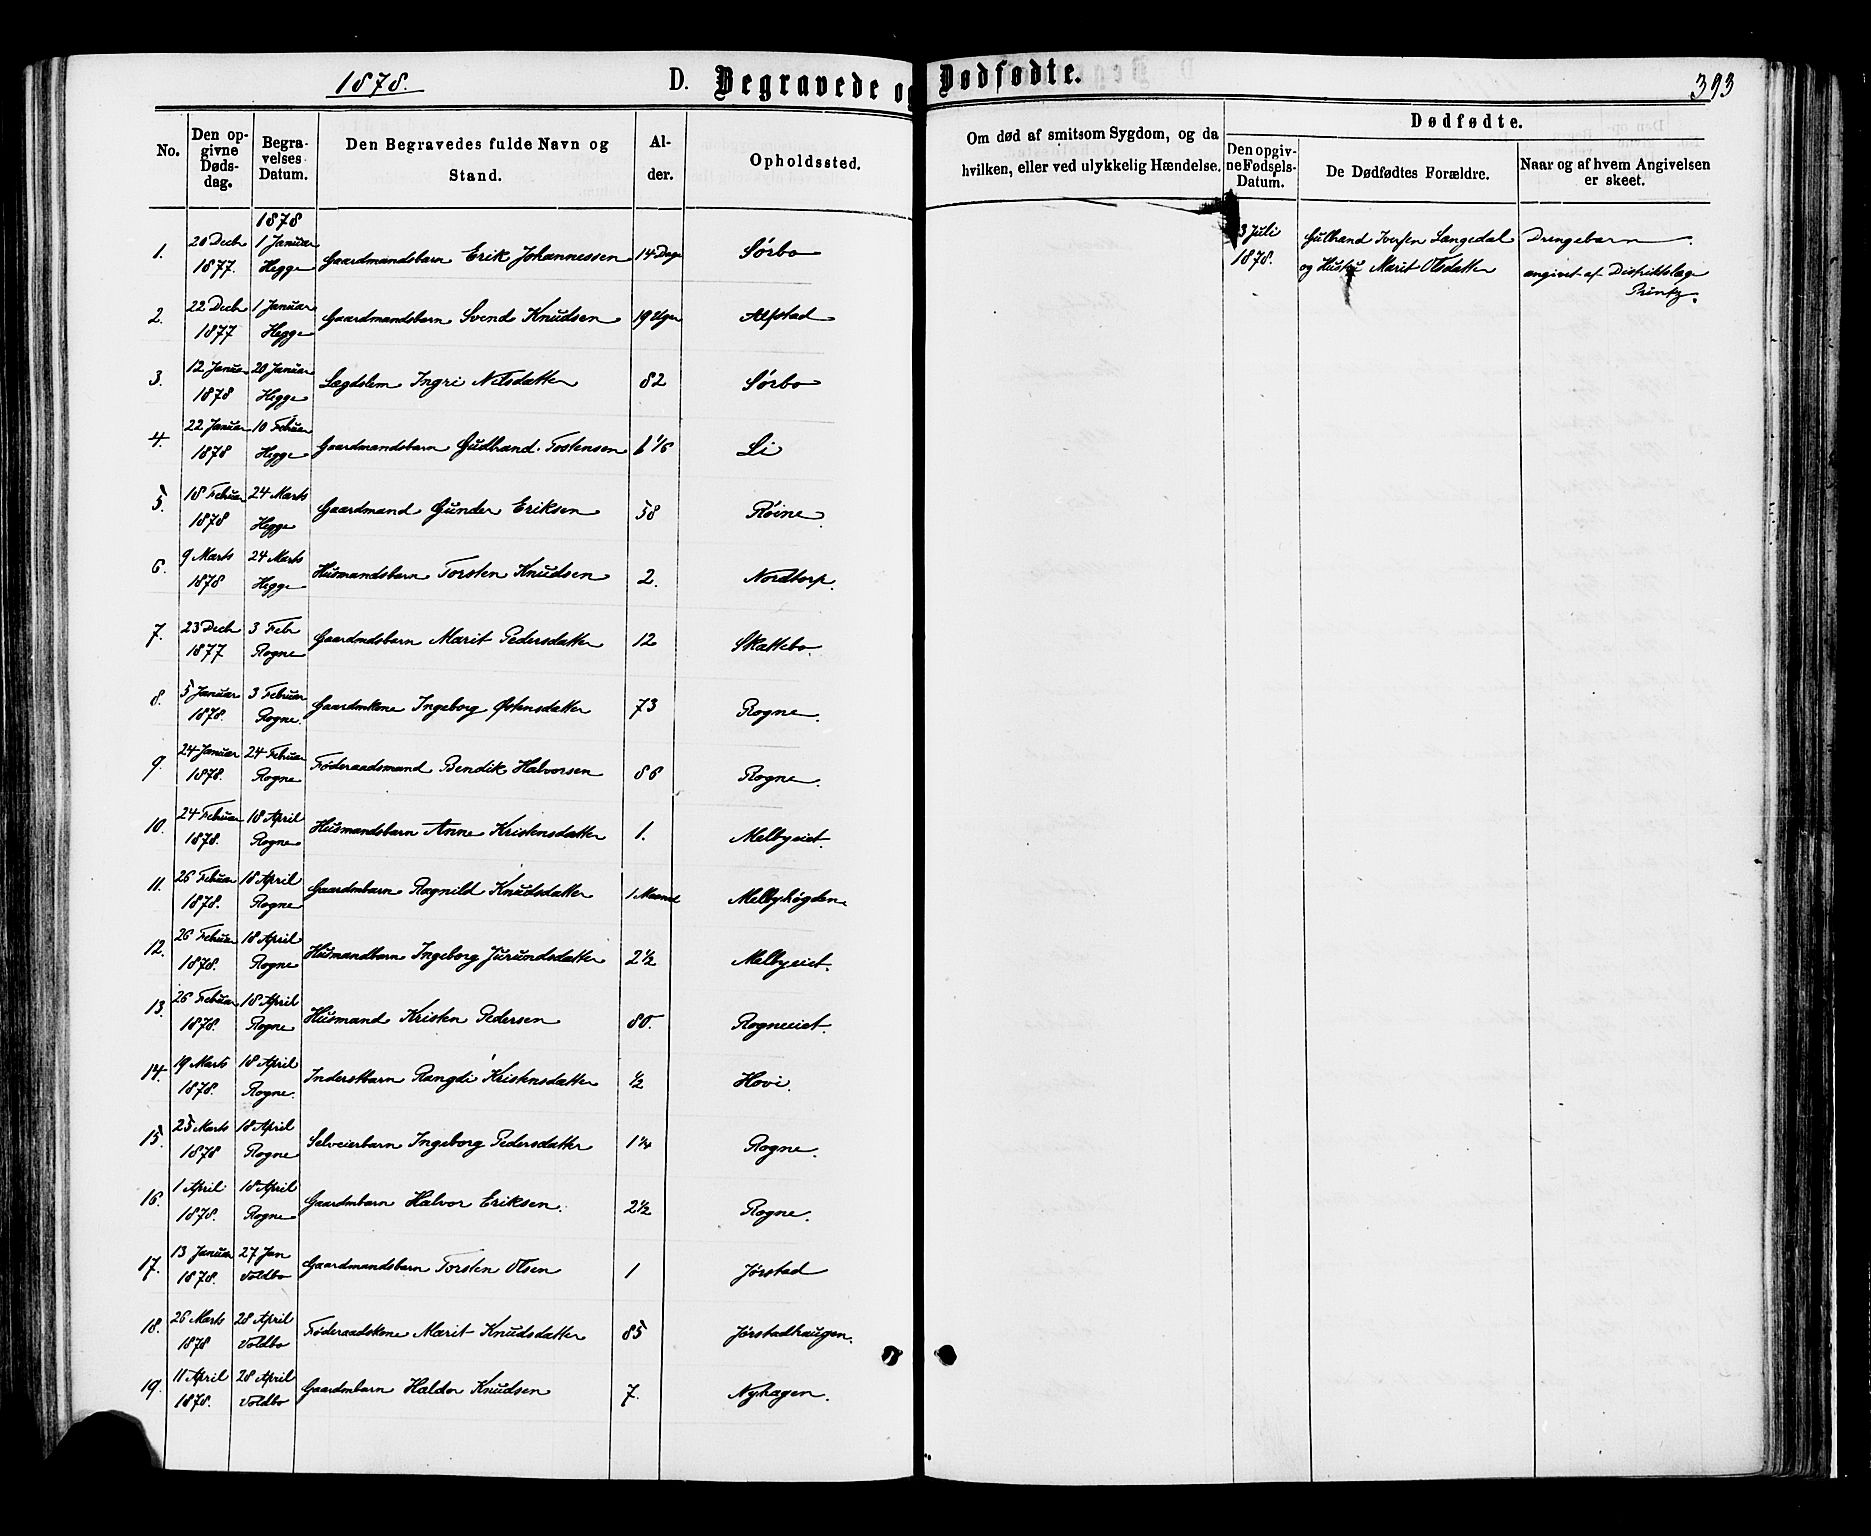 1878.
D. Begravede og Dødfødte.
393
No.
Den opgivne Dødsdag.
Begravelses Datum.
Den Begravedes fulde Navn og Stand.
Alder.
Opholdssted.
Om død af smitsom Sygdom, og da hvilken, eller ved ulykkelig Hændelse.
Dødfødte.
Den opgivne Fødsels-Datum.
De Dødfødtes Forældre.
Naar og af hvem Angivelsen er skeet.
1878
1. 20 Decbr 1877. 1 Januar Hegge Gaardmandsbarn Erik Johannessen 14 Dage Sørbo
2. 22 Decbr 1877 1 Januar Hegge Gaardmandsbarn Svend Knudsen 19 Uger Alfstad
3. 12 Januar 1878 20 Januar Hegge Lægdslem Ingri Nilsdatter 82 Sørbo
4. 22 Januar 1878 10 Februar Hegge Gaardmandsbarn Gudbrand Tostensen Li
5. 18 Februar 1878 24 Marts Hegge Gaardmand Gunder Eriksen 58 Røine
6. 9 Marts 1878 24 Marts Hegge Husmandsbarn Torsten Knudsen 2. Nordtorp.
7. 23 Decbr 1877 3 Febr Rogne Gaardmdsbarn Marit Pedersdatter 12 Skattebo.
8. 5 Januar 1878. 3 Februar Rogne. Gaardmkone Ingeborg Østensdatter 73 Rogne.
9. 24 Januar 1878. 24 Februar Rogne Føderaadsmand Bendik Halvorsen 86 Rogne.
10. 24 Februar 1878. 18 April Rogne Husmandsbarn Anne Kristensdatter 1. Melbyeiet.
11. 26 Februar 1878. 18 April Rogne Gaardmbarn Ragnild Knudsdatter 1 Maaned Melbyhøgden
12. 26 Februar 1878. 18 April Rogne Husmandbarn Ingeborg Jurundsdatter 2½ Melbyeiet.
13. 26 Februar 1878. 18 April Rogne Husmand Kristen Pedersen 80. Rogneeiet.
14. 19 Marts 1878. 18 April Rogne. Inderstbarn Rangdi Kristensdatter ½ Hovi.
15. 25 Marts 1878 18 April Rogne Selveierbarn Ingeborg Pedersdatter 1¼ Rogne.
16. 1 April 1878. 18 April Rogne Gaardmbarn Halvor Eriksen. 2½ Rogne.
17. 13 Januar 1878. 27 Jan Voldbo Gaardmandsbarn Torsten Olsen 1 Jørstad
18. 26 Marts 1878 28 April Voldbo Føderaadskone Marit Knudsdatter 85 Jørstadhaugen.
19. 11 April 1878. 28 April Voldbo Gaardmbarn Haldor Knudsen 7. Nyhagen.
3 Juli 1878.
Gulbrand Iversen Langedal
og Hustru Marit Olsdatter
Drengebarn
angivet af Distriktslæge
Printz.